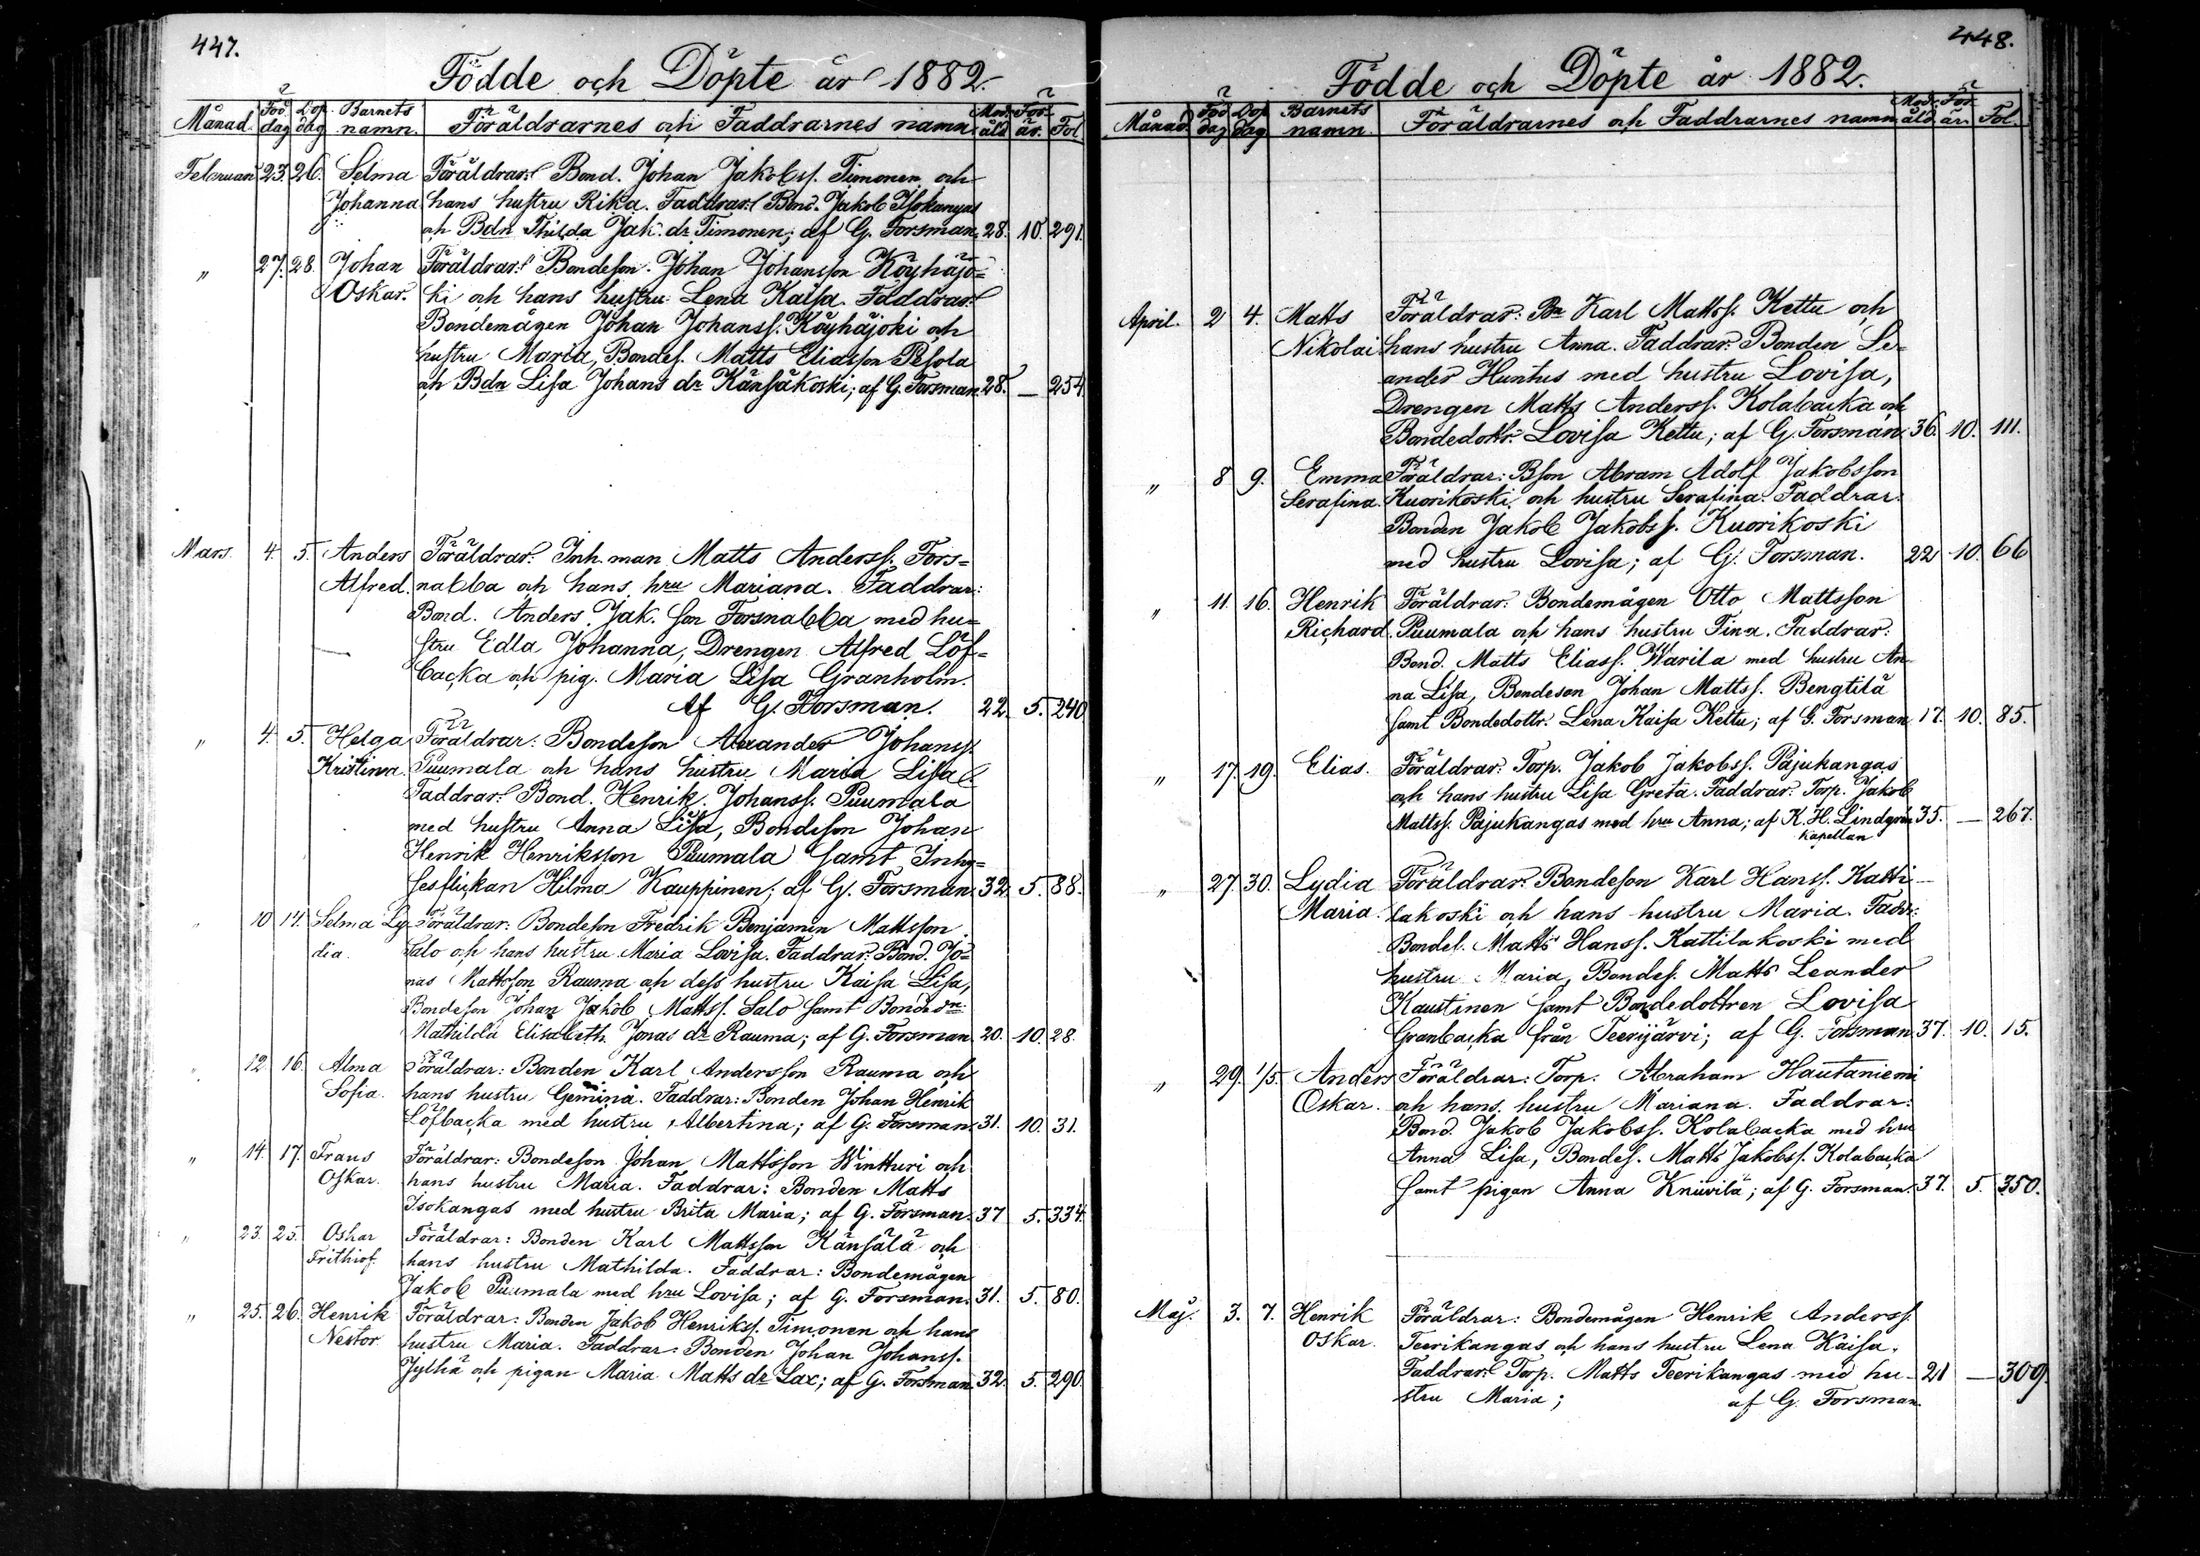 447.
Födde och Döpte år 1882.
Månad. Föd. dag Döp. dag Barnets namn. Föräldrarnes och Faddrarnes namn. Mod. åld. För. år. Fol.
Februari 23. 26. Selma Föräldrar: Bond. Johan Jakobss. Timonen och
Johanna hans hustru Rika. Faddrar: Bond. Jakob Isokangas
och Bdn Thilda Jak. dr Timonen; af G. Forsman. 28. 10. 291.
" 27. 28. Johan Föräldrar: Bondeson Johan Johansson Köyhäjo=
Oskar. ki och hans hustru Lena Kaisa. Faddrar:
Bondemågen Johan Johanss. Köyhäjoki och
hustru Maria, Bondes. Matts Eliasson Pesola
och Bdn Lisa Johans dr Känsäkoski; af G. Forsman. 28. — 254
Mars. 4. 5. Anders Föräldrar: Inh. man Matts Anderss. Fors=
Alfred. nabba och hans hru Mariana. Faddrar:
Bond. Anders Jak. son Forsnabba med hu=
stru Edla Johanna, Drengen Alfred Löf=
backa och pig. Maria Lisa Granholm.
Af G. Forsman. 22. 5. 240
" 4. 5. Helga Föräldrar: Bondeson Alexander Johanss.
Kristina. Puumala och hans hustru Maria Lisa
Faddrar: Bond. Henrik Johanss. Puumala
med hustru Anna Lisa, Bondeson Johan
Henrik Henriksson Puumala samt Inhy=
sesflickan Hilma Kauppinen; af G. Forsman. 32. 5. 88.
" 10 14. Selma Ly- Föräldrar: Bondeson Fredrik Benjamin Mattsson
dia. Salo och hans hustru Maria Lovisa. Faddrar: Bond. Jo=
nas Mattsson Rauma och dess hustru Kaisa Lisa,
Bondeson Johan Jakob Mattss. Salo samt Bonded:n
Mathilda Elisabeth Jonas dr Rauma; af G. Forsman. 20. 10. 28.
" 12 16. Alma Föräldrar: Bonden Karl Andersson Rauma och
Sofia. hans hustru Gemina. Faddrar: Bonden Johan Henrik
Löfbacka med hustru Albertina; af G. Forsman. 31. 10. 31.
" 14. 17. Frans Föräldrar: Bondeson Johan Mattsson Wintturi och
Oskar. hans hustru Maria. Faddrar: Bonden Matts
Isokangas med hustru Brita Maria; af G. Forsman. 37 5. 334.
" 23. 25. Oskar Föräldrar: Bonden Karl Mattsson Känsälä och
Frithiof. hans hustru Mathilda. Faddrar: Bondemågen
Jakob Puumala med hru Lovisa; af G. Forsman. 31. 5. 80.
" 25. 26. Henrik Föräldrar: Bonden Jakob Henrikss. Timonen och hans
Nestor. hustru Maria. Faddrar: Bonden Johan Johanss.
Jylhä och pigan Maria Matts dr Lax; af G. Forsman. 32. 5. 290.
448.
Födde och Döpte år 1882.
Månad. Föd dag Döp dag Barnets namn. Föräldrarnes och Faddrarnes namn. Mod. åld. För. år. Fol.
April. 2 4. Matts Föräldrar: Bn Karl Mattss. Kettu och
Nikolai. hans hustru Anna. Faddrar: Bonden Le=
ander Huntus med hustru Lovisa,
Drengen Matts Anderss. Kolabacka och
Bondedottr. Lovisa Kettu; af G. Forsman. 36. 10. 111.
" 8 9. Emma Föräldrar: Bson Abram Adolf Jakobsson
Serafina. Kuorikoski och hustru Serafina. Faddrar.
Bonden Jakob Jakobss. Kuorikoski
med hustru Lovisa; af G. Forsman. 22 10. 66
" 11. 16. Henrik Föräldrar: Bondemågen Otto Mattsson
Richard. Puumala och hans hustru Tina. Faddrar:
Bond. Matts Eliass. Warila med hustru An-
na Lisa, Bondeson Johan Mattss. Bengtilä
samt Bondedottr. Lena Kaisa Kettu; af G. Forsman 17. 10. 85.
" 17. 19. Elias. Föräldrar: Torp. Jakob Jakobss. Pajukangas
och hans hustru Lisa Greta. Faddrar: Torp. Jakob
Mattss. Pajukangas med hru Anna; af K. H. Lindqvist 35. — 267.
Kapellan
" 27. 30. Lydia Föräldrar: Bondeson Karl Hanss. Katti-
Maria. lakoski och hans hustru Maria. Faddr:
Bondes. Matts Hanss. Kattilakoski med
hustru Maria, Bondes. Matts Leander
Kaustinen samt Bondedottren Lovisa
Granbacka från Teerijärvi; af G. Forsman 37. 10. 15.
" 29. 1/5. Anders Föräldrar: Torp. Abraham Hautaniemi
Oskar. och hans hustru Mariana. Faddrar:
Bond. Jakob Jakobss. Kolabacka med hru
Anna Lisa, Bondes. Matts Jakobss. Kolabacka
samt pigan Anna Kniivilä; af G. Forsman. 37. 5. 350.
Maj. 3. 7. Henrik Föräldrar: Bondemågen Henrik Anderss.
Oskar. Teerikangas och hans hustru Lena Kaisa.
Faddrar: Torp. Matts Teerikangas med hu- 21 — 309.
stru Maria; af G. Forsman.